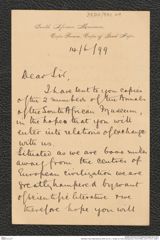 South African Museum,
Cape Town, Cape of Good Hope
14/6/99
Dear Sir,
I have sent to you copies
of the 2 numbers of the Annals
of the South African Museum
in the hopes that you will
enter into relations of exchange
with us.
Situated as we are 6000 miles
away from the centres of
European civilization we are
greatly hampered by want
of scientific literature &
therefore hope you will